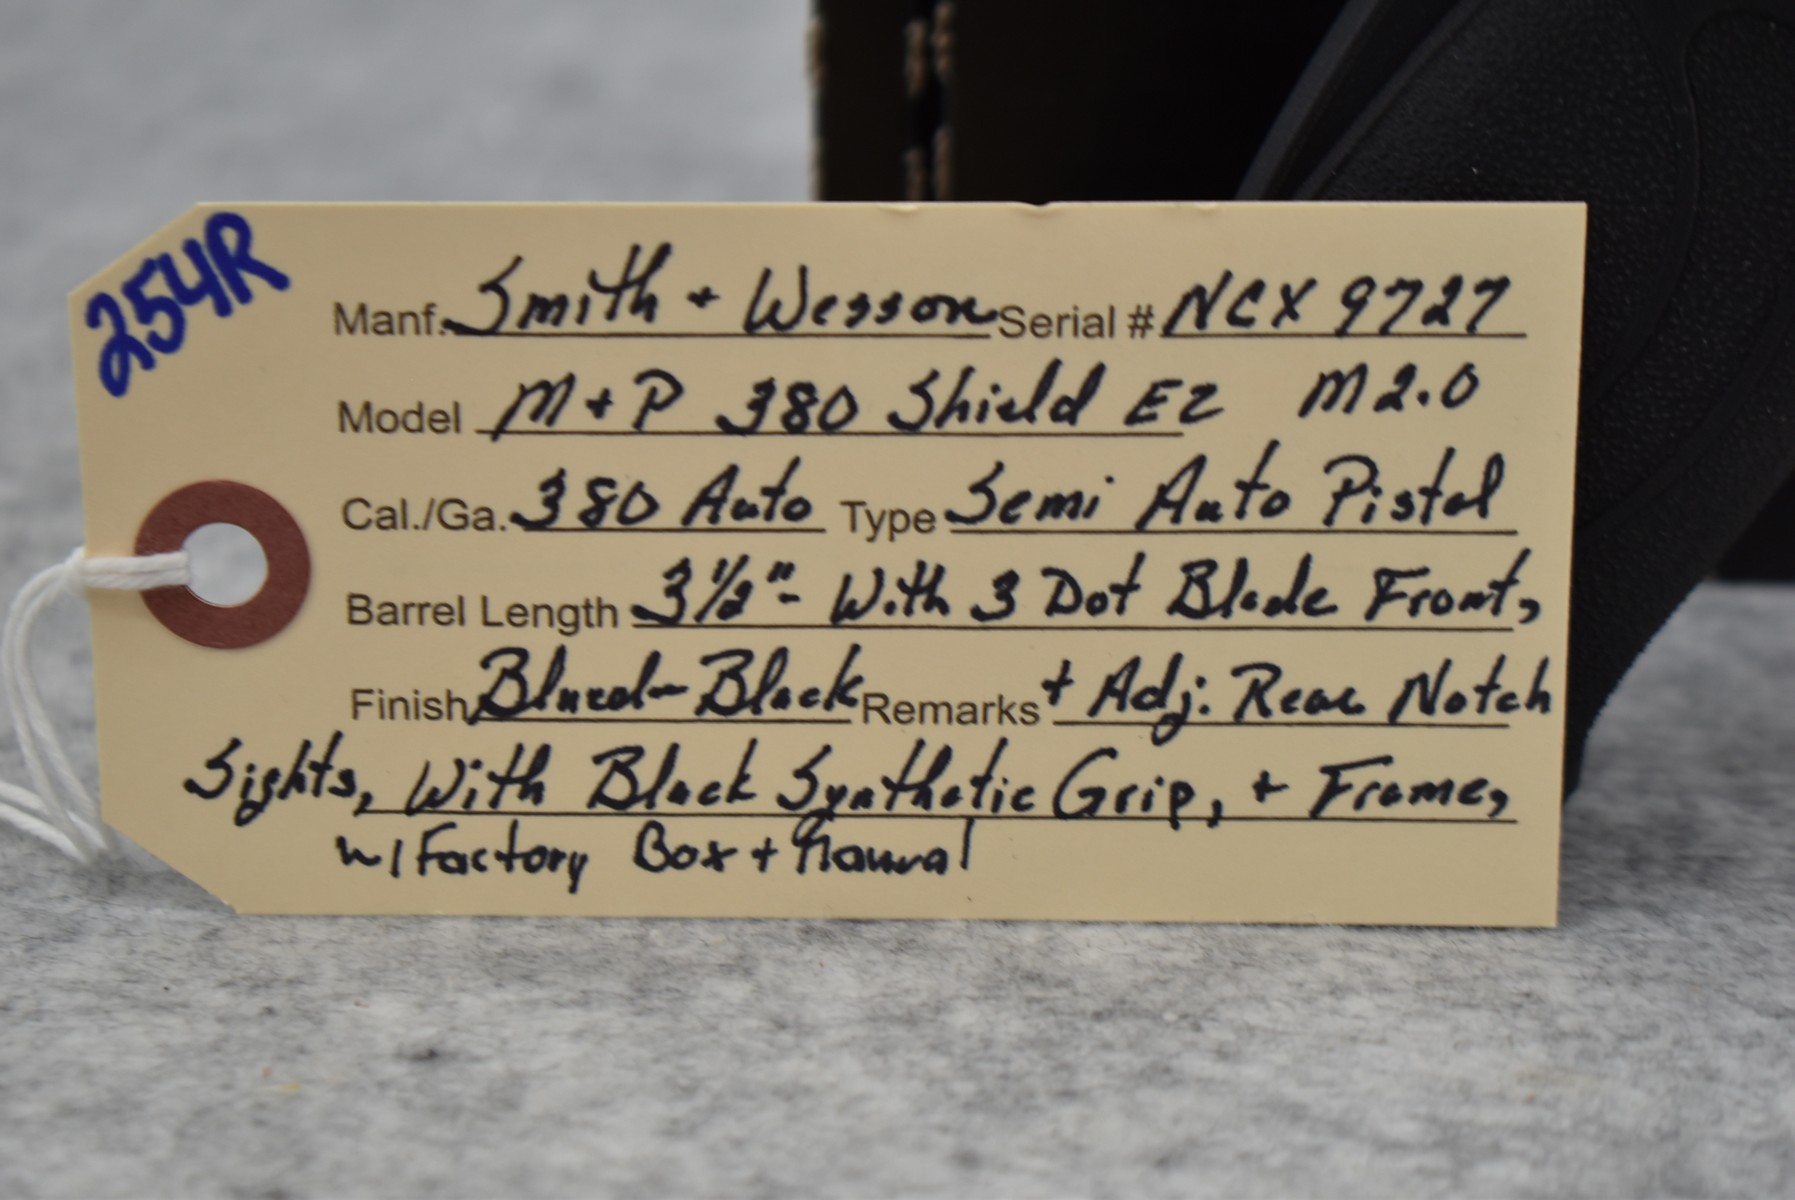 254R
Manf. Smith + Wesson Serial # NCX 9727
Model M+P 380 Shield EZ M2.0
Cal./Ga. 380 Auto Type Semi Auto Pistol
Barrel Length 3½"- With 3 Dot Blade Front,
Finish Blued-Black Remarks + Adj. Rear Notch
Sights, With Black Synthetic Grip, + Frame,
w/ Factory Box + Manual